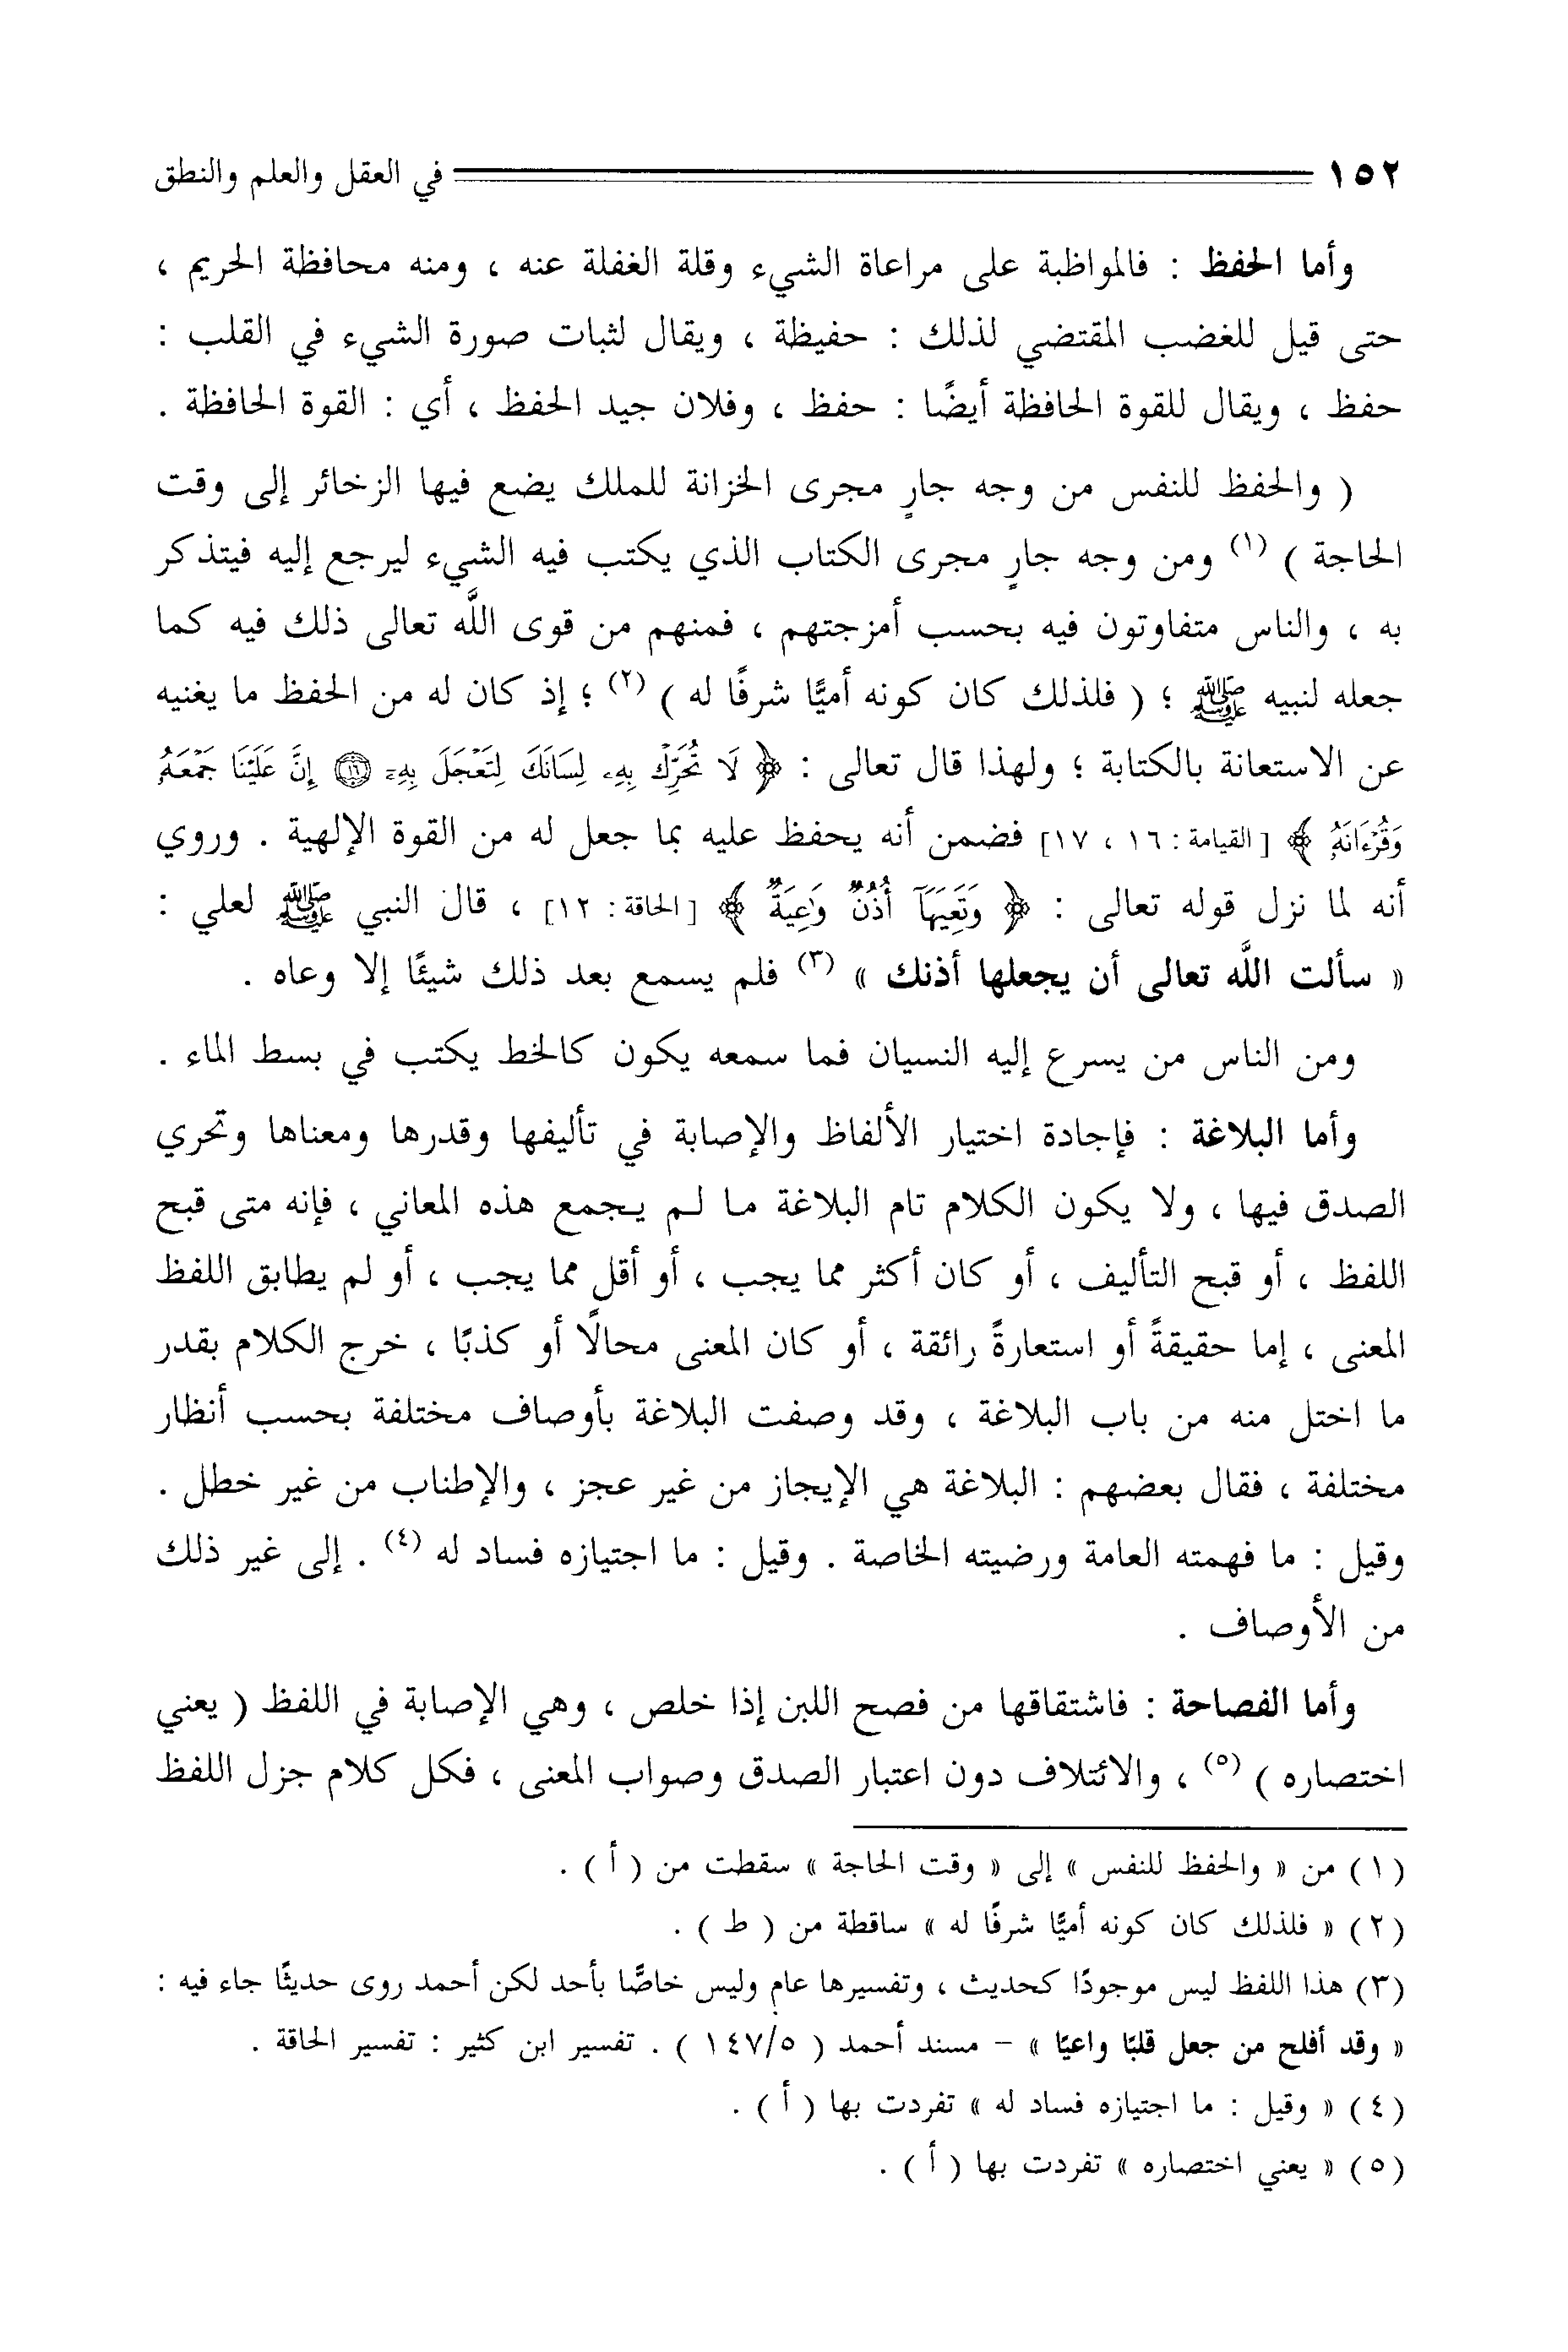 ١٥٢ في العقل والعلم والنطق
وأما الحفظ : فالمواظبة على مراعاة الشيء وقلة الغفلة عنه ، ومنه محافظة الحريم ،
حتى قيل للغضب المقتضي لذلك : حفيظة ، ويقال لثبات صورة الشيء في القلب :
حفظ ، ويقال للقوة الحافظة أيضًا : حفظ ، وفلان جيد الحفظ ، أي : القوة الحافظة .
( والحفظ للنفس من وجه جارٍ مجرى الخزانة للملك يضع فيها الزخائر إلى وقت
الحاجة ) (١) ومن وجه جارٍ مجرى الكتاب الذي يكتب فيه الشيء ليرجع إليه فيتذكر
به ، والناس متفاوتون فيه بحسب أمزجتهم ، فمنهم من قوى اللَّه تعالى ذلك فيه كما
جعله لنبيه ﷺ ؛ ( فلذلك كان كونه أميًّا شرفًا له ) (٢) ؛ إذ كان له من الحفظ ما يغنيه
عن الاستعانة بالكتابة ؛ ولهذا قال تعالى : ﴿ لَا تُحَرِّكْ بِهِۦ لِسَانَكَ لِتَعْجَلَ بِهِۦٓ ۝١٦ إِنَّ عَلَيْنَا جَمْعَهُۥ
وَقُرْءَانَهُۥ ﴾ [ القيامة : ١٦ ، ١٧] فضمن أنه يحفظ عليه بما جعل له من القوة الإلهية . وروي
أنه لما نزل قوله تعالى : ﴿ وَتَعِيَهَآ أُذُنٌ وَٰعِيَةٌ ﴾ [ الحاقة : ١٢] ، قال النبي ﷺ لعلي :
« سألت اللَّه تعالى أن يجعلها أذنك » (٣) فلم يسمع بعد ذلك شيئًا إلا وعاه .
ومن الناس من يسرع إليه النسيان فما سمعه يكون كالخط يكتب في بسط الماء .
وأما البلاغة : فإجادة اختيار الألفاظ والإصابة في تأليفها وقدرها ومعناها وتحري
الصدق فيها ، ولا يكون الكلام تام البلاغة ما لم يجمع هذه المعاني ، فإنه متى قبح
اللفظ ، أو قبح التأليف ، أو كان أكثر مما يجب ، أو أقل مما يجب ، أو لم يطابق اللفظ
المعنى ، إما حقيقةً أو استعارةً رائقة ، أو كان المعنى محالًا أو كذبًا ، خرج الكلام بقدر
ما اختل منه من باب البلاغة ، وقد وصفت البلاغة بأوصاف مختلفة بحسب أنظار
مختلفة ، فقال بعضهم : البلاغة هي الإيجاز من غير عجز ، والإطناب من غير خطل .
وقيل : ما فهمته العامة ورضيته الخاصة . وقيل : ما اجتيازه فساد له (٤) . إلى غير ذلك
من الأوصاف .
وأما الفصاحة : فاشتقاقها من فصح اللبن إذا خلص ، وهي الإصابة في اللفظ ( يعني
اختصاره ) (٥) ، والائتلاف دون اعتبار الصدق وصواب المعنى ، فكل كلام جزل اللفظ
(١) من « والحفظ للنفس » إلى « وقت الحاجة » سقطت من ( أ ) .
(٢) « فلذلك كان كونه أميًّا شرفًا له » ساقطة من ( ط ) .
(٣) هذا اللفظ ليس موجودًا كحديث ، وتفسيرها عام وليس خاصًّا بأحد لكن أحمد روى حديثًا جاء فيه :
« وقد أفلح من جعل قلبًا واعيًا » – مسند أحمد ( ١٤٧/٥ ) . تفسير ابن كثير : تفسير الحاقة .
(٤) « وقيل : ما اجتيازه فساد له » تفردت بها ( أ ) .
(٥) « يعني اختصاره » تفردت بها ( أ ) .